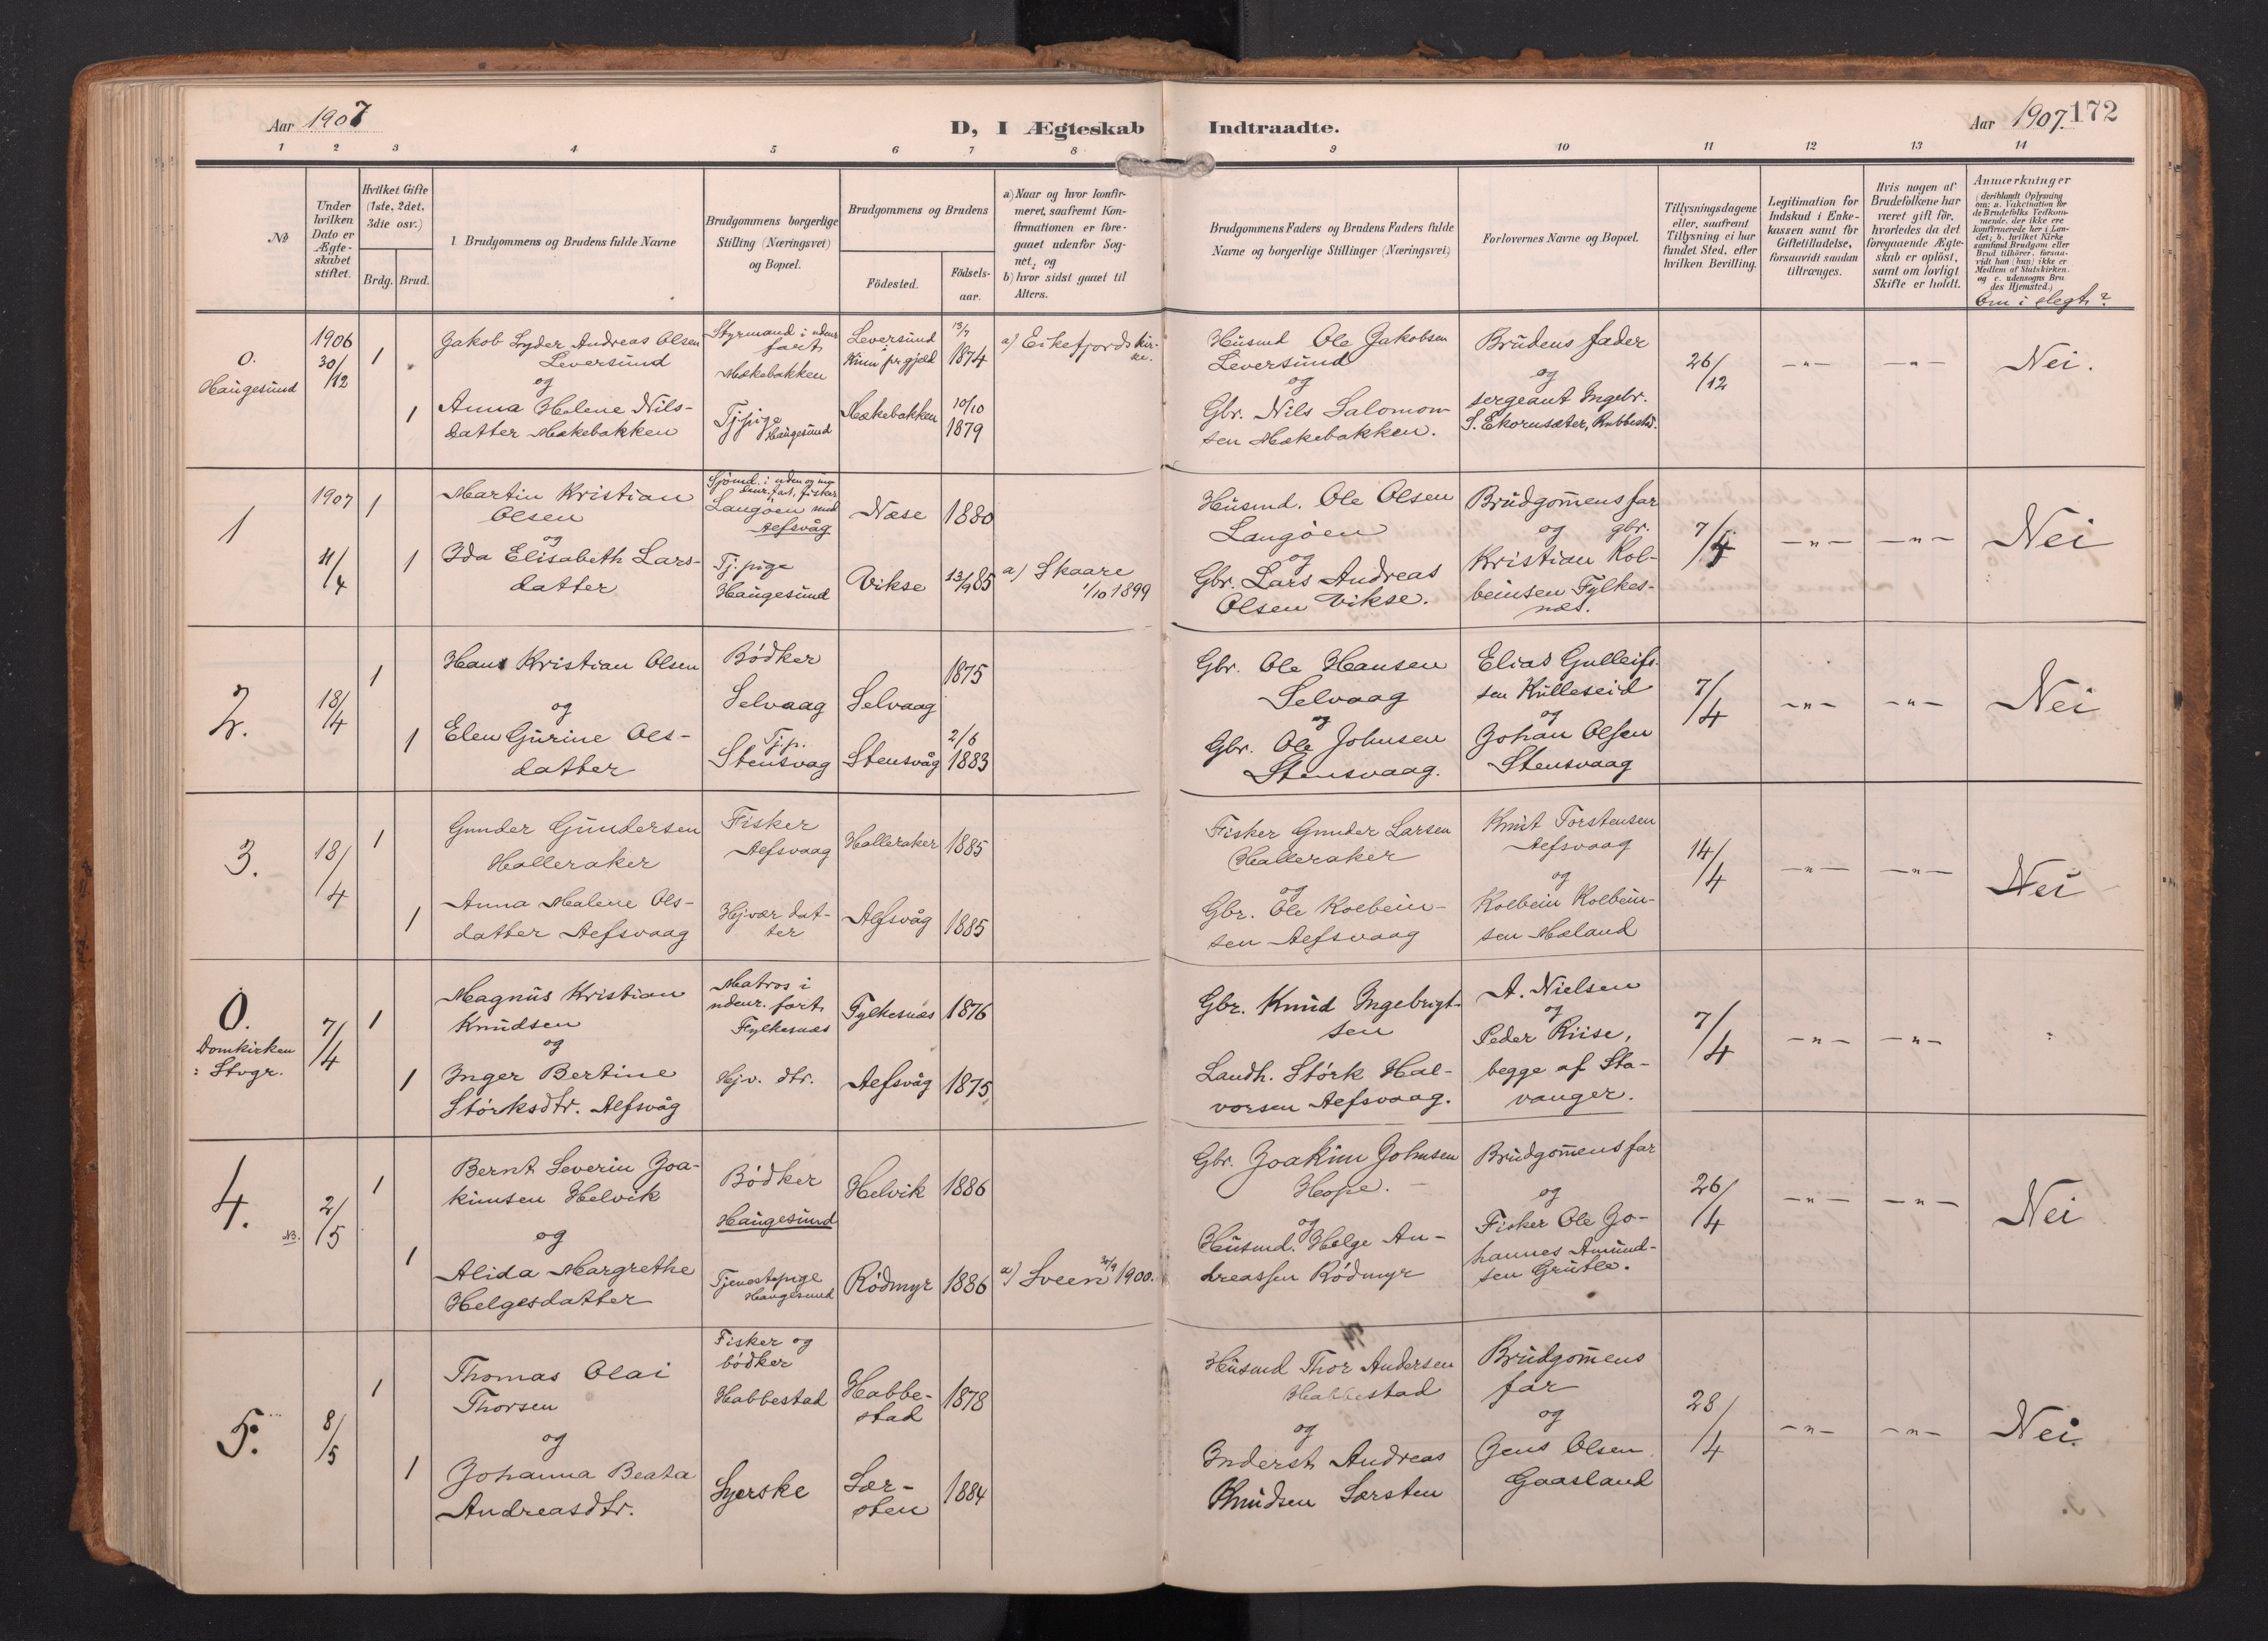 Aar 1907
D, I Ægteskab Indtraadte.
Aar 1907. 172
1 2 3 4 5 6 7 8 9 10 11 12 13 14
No
Under hvilken Dato er Ægteskabet stiftet.
Hvilket Gifte (1ste, 2det, 3die osv.)
Brdg. Brud.
1. Brudgommens og Brudens fulde Navne
Brudgommens borgerlige Stilling (Næringsvei) og Bopæl.
Brudgommens og Brudens
Födested.
Födsels-aar.
a) Naar og hvor konfir-
meret, saafremt Kon-
firmationen er fore-
gaaet udenfor Sog-
net, og
b) hvor sidst gaaet til
Alters.
Brudgommens Faders og Brudens Faders fulde
Navne og borgerlige Stillinger (Næringsvei)
Forlovernes Navne og Bopæl.
Tillysningsdagene
eller, saafremt
Tillysning ei har
fundet Sted, efter
hvilken Bevilling.
Legitimation for
Indskud i Enke-
kassen samt for
Giftetilladelse,
forsaavidt saadan
tiltrænges.
Hvis nogen af
Brudefolkene har
været gift för,
hvorledes da det
foregaaende Ægte-
skab er oplöst,
samt om lovligt
Skifte er holdt.
Anmærkninger
(deriblandt Oplysning
om: a. Vakcination for
de Brudefolks Vedkom-
mende, der ikke ere
konfirmerede her i Lan-
det; b. hvilket Kirke
samfund Brudgom eller
Brud tilhörer, forsaa-
vidt han (hun) ikke er
Medlem af Statskirken,
og c. udensogns Bru
des Hjemsted.)
Om i slegt?
0.
Haugesund
1906
30/12
1
Jakob Lyder Andreas Olsen
Leversund
og
1
Anna Helene Nils-
datter Mækebakken
Styrmand i udenr
fart
Mækebakken
Tj.pige
Haugesund
Leversund
Kinn pr gjæld
Mækebakken
13/7
1874
10/10
1879
a) Eikefjords kir-
ke.
Husmd Ole Jakobsen
Leversund
og
Gbr. Nils Salomon-
sen Mækebakken.
Brudens fader
og
sergeant Ingebr.
S. Ekornsæter, Rubbestd.
26/12
—"—
—"—
Nei.
1
1907
11/4
1
Martin Kristian
Olsen
og
1
Ida Elisabeth Lars-
datter
Langöen
Aefsvåg
Tj. pige
Haugesund
Næse
Vikse
1880
13/9 85
a) Skaare
1/10 1899
Husmd. Ole Olsen
Langöen
og
Gbr. Lars Andreas
Olsen Vikse.
Brudgom̄ens far
og gbr.
Kristian Kol-
beinsen Fylkes-
næs.
7/4
—"—
—"—
Nei
2.
18/4
1
Hans Kristian Olsen
og
1
Elen Gurine Ols-
datter
Bödker
Selvaag
Tj.p.
Stensvag
Selvaag
Stensvåg
1875
2/6
1883
Gbr. Ole Hansen
Selvaag
og
Gbr. Ole Johnsen
Stensvaag.
Elias Gulleifs-
sen Kulleseid
og
Johan Olsen
Stensvaag
7/4
—"—
—"—
Nei
3.
18/4
1
Gunder Gundersen
Halleraker
1
Anna Malene Ols-
datter Aefsvaag
Fisker
Aefsvaag
Hjvær dat-
ter
Halleraker
Alfsvåg
1885
1885
Fisker Gunder Larsen
Halleraker
og
Gbr. Ole Kolbein-
sen Aefsvaag
Knut Torstensen
Aefsvaag
og
Kolbein Kolbein-
sen Mæland
14/4
—"—
—"—
Nei
0.
Domkirken
: Stvgr.
7/4
1
Magnus Kristian
Knudsen
og
1
Inger Bertine
Störksdtr. Alfsvåg
Matros i
udenr. fart
Fylkesnæs
Hjv. dtr.
Fylkesnæs
Aefsvåg
1876
1875
Gbr. Knud Ingebrigt-
sen
Landh. Störk Hal-
vorsen Aefsvaag.
A. Nielsen
og
Peder Riise,
begge af Sta-
vanger.
7/4
—"—
—"—
4.
NB.
2/5
1
Bernt Severin Joa-
kimsen Helvik
og
1
Alida Margrethe
Helgesdatter
Bödker
Haugesund
Tjenestepige
Haugesund
Helvik
Rödmyr
1886
1886
a) Sveen 30/9 1900.
Gbr. Joakim Johnsen
Hope.
og
Husmd. Helge An-
dreassen Rödmyr
Brudgom̄ens far
og
Fisker Ole Jo-
hannes Amund-
sen Grutle.
26/4
—"—
—"—
Nei
5.
8/5
1
Thomas Olai
Thorsen
og
1
Johanna Beata
Andreasdtr.
Fisker og
bödker
Habbestad
Syerske
Habbe-
stad
Sær-
sten
1878
1884
Husmd Thor Andersen
Habbestad
og
Inderst Andreas
Knudsen Særsten
Brudgom̄ens
far
og
Jens Olsen
Gaasland
28/4
—"—
—"—
Nei.